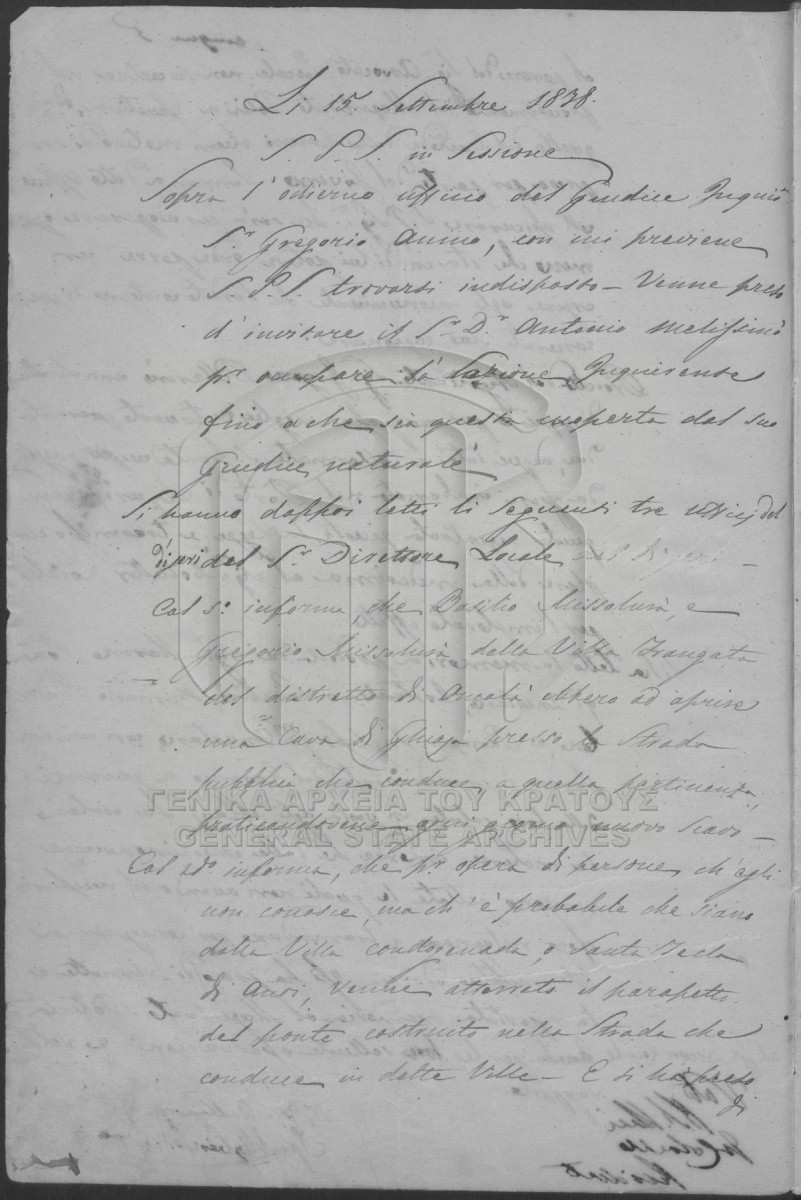 Li 15. Settembre 1838.
S. P. S. in Sessione
Sopra l'odierno uffizio del Giudice Inquis.e
S.r Gregorio Anino, con cui previene
S. P. S. trovarsi indisposto – Venne preso
d'invitare il S.r D.r Antonio Melissinò
p.r occupare la Sezione Inquirente
fino a che sia questa coperta dal suo
Giudice naturale
Si hanno dappoi letti li seguenti tre uffizj del
dì jeri del S.r Direttore Locale
Col 1.o informa, che Basilio Missalurà, e
Gregorio Missalurà dalla Villa Frangata
del distretto di Omalà ebbero ad aprire
una Cava di Ghiaja presso la Strada
pubblica che conduce, a quella pertinenza,
praticandovene ogni giorno nuovo scavo –
Col 2.do informa, che p.r opera di persone, ch'egli
non conosce, ma ch'è probabile che siano
dalla Villa condogenada, o Santa Tecla
di Anoi, venne atterrato il parapetto
del ponte costruito nella Strada che
conduce in dette Ville – E si ha preso
di
ΓΕΝΙΚΑ ΑΡΧΕΙΑ ΤΟΥ ΚΡΑΤΟΥΣ
GENERAL STATE ARCHIVES